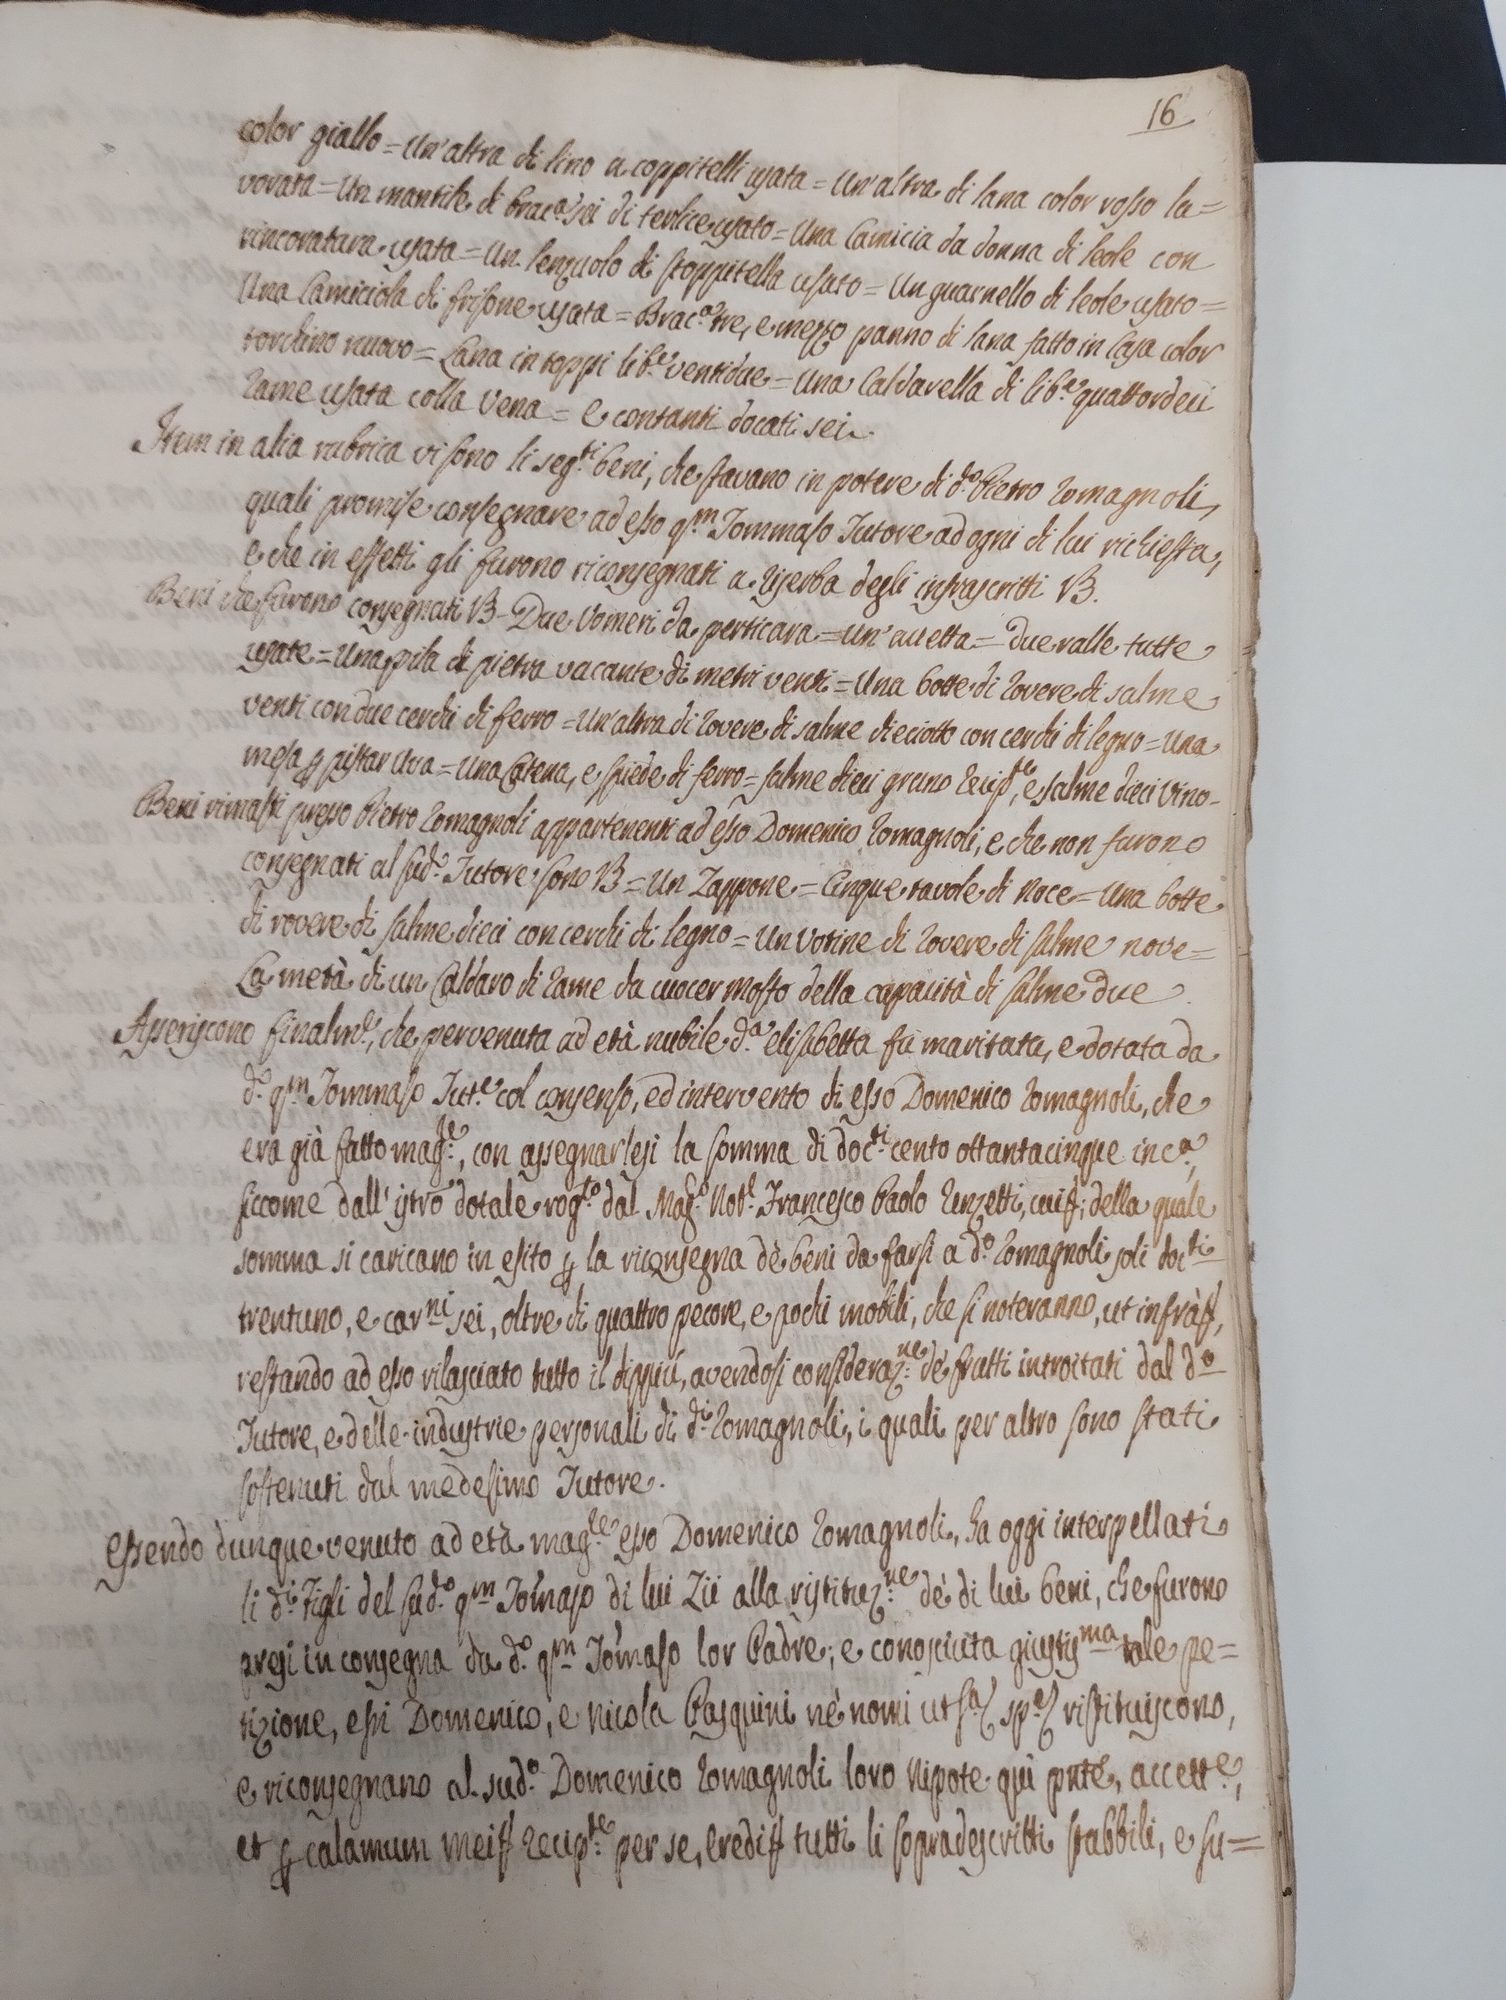 16
color giallo = Un'altra di lino a coppitelli usata = Un'altra di lana color rosso la=
vorata = Un mantile di brac.a sei di terlice usato = Una Camicia da donna di leole con
rincoratura usata = Un lenzuolo di stoppitella usato = Un guarnello di leole usato =
Una Camiciola di frisone usata = Brac.a tre, e mezzo panno di lana fatto in Casa color
torchino nuovo = Lana in toppi lib.e ventidue = Una Caldarella di lib.e quattordeci
rame usata colla Vena = e contanti docati sei.
Item in alia rubrica vi sono li seg.ti beni, che stavano in potere di d.o Pietro Romagnoli,
quali promise consegnare ad esso q.m Tommaso Tutore ad ogni di lui richiesta,
e che in effetti gli furono riconsegnati a riserba degli infrascritti
Beni che furono consegnati Due Vomeri da perticara = Un' accetta = Due ralle tutte
usate = Una pila di pietra vacante di metri venti = Una botte di rovere di salme
venti con due cerchi di ferro = Un'altra di rovere di salme dieciotto con cerchi di legno = Una
mesa p pistar Uva = Una Catena, e spiede di ferro = salme dieci grano e salme dieci Vino -
Beni rimasti presso Pietro Romagnoli appartenenti ad esso Domenico Romagnoli, e che non furono
consegnati al sud.o Tutore sono = Un Zappone = Cinque tavole di Noce = Una botte
di rovere di salme dieci con cerchi di legno = Un Votine di rovere di salme nove =
La metà di un Caldaro di rame da cuocer mosto della capacità di salme due
Asseriscono finalm.te, che pervenuta ad età nubile d.a Elisabetta fù maritata, e dotata da
d.o q.m Tommaso Tut.e col consenso, ed intervento di esso Domenico Romagnoli, che
era già fatto mag.re, con assegnarlesi la somma di doc.ti cento ottantacinque inc.a,
siccome dall' istro dotale rog.to dal Mag.co Not.r Francesco Paolo Renzetti, della quale
somma si caricano in esito p la riconsegna dè beni da farsi a d.o Romagnoli soli doc.ti
trentuno, e car.ni sei, oltre di quattro pecore, e pochi mobili, che si noteranno, ut infrà,
restando ad esso rilasciato tutto il dippiù, avendosi consideraz.ne dè frutti introitati dal d.o
Tutore, e delle industrie personali di d.i Romagnoli, i quali per altro sono stati
sostenuti dal medesimo Tutore.
Essendo dunque venuto ad età mag.re esso Domenico Romagnoli, ha oggi interpellati
li d.i Figli del sud.o q.m Tomaso di lui Zii alla ristituz.ne dè di lui beni, che furono
presi in consegna da d.o q.m Tomaso lor Padre; e conosciuta giustis.ma tale pe=
tizione, essi Domenico, e Nicola Pasquini nè nomi ut s.a sp.e ristituiscono,
e riconsegnano al sud.o Domenico Romagnoli loro Nipote quì pnte, accett.e,
et p calamum mei recip.te per se, ered tutti li sopradescritti stabbili, e su=